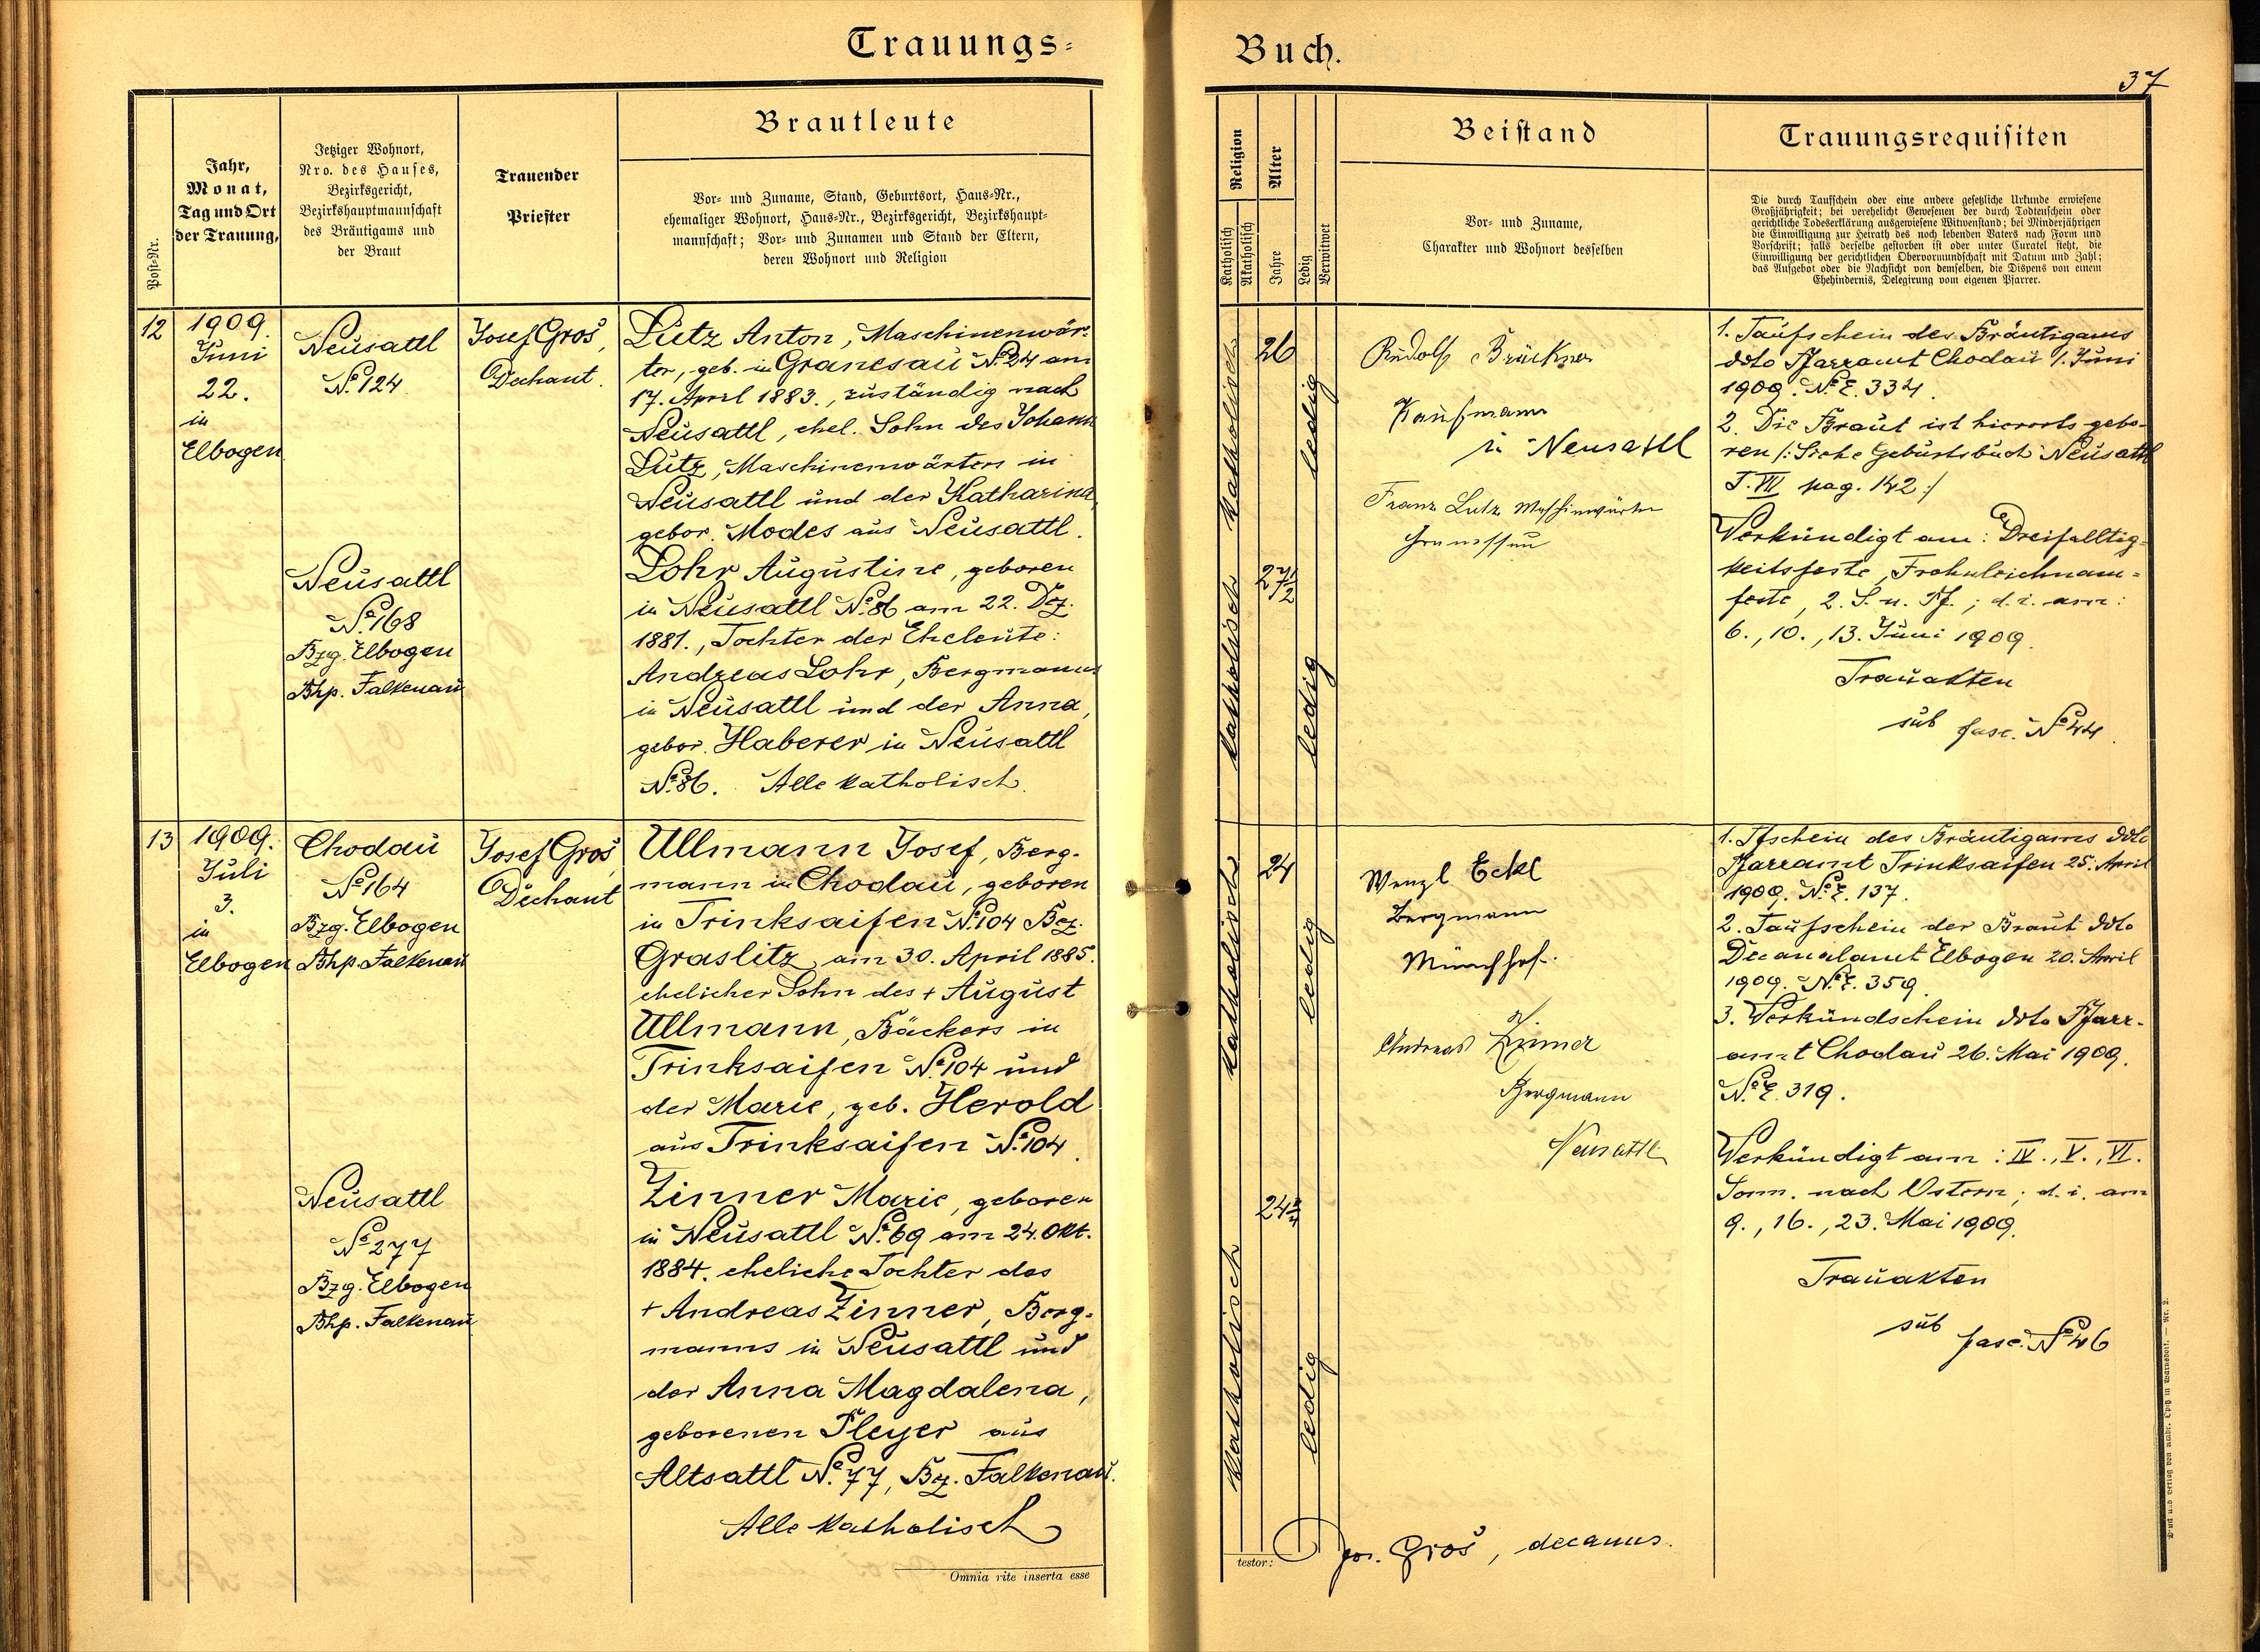 Trauungs-
Buch.
37
Post-Nr.
Jahr,
Monat,
Tag und Ort
der Trauung,
Jetziger Wohnort,
Nro. des Hauses,
Bezirksgericht,
Bezirkshauptmannschaft
des Bräutigams und
der Braut
Trauender
Priester
Brautleute
Vor- und Zuname, Stand, Geburtsort, Haus-Nr.,
ehemaliger Wohnort, Haus-Nr., Bezirksgericht, Bezirkshaupt-
mannschaft; Vor- und Zunamen und Stand der Eltern,
deren Wohnort und Religion
Religion
Katholisch
Akatholisch
Alter
Jahre
Ledig
Verwitwet
Beistand
Vor- und Zuname,
Charakter und Wohnort desselben
Trauungsrequisiten
Die durch Taufschein oder eine andere gesetzliche Urkunde erwiesene
Großjährigkeit; bei verehelicht Gewesenen der durch Todtenschein oder
gerichtliche Todeserklärung ausgewiesene Witwenstand; bei Minderjährigen
die Einwilligung zur Heirath des noch lebenden Vaters nach Form und
Vorschrift; falls derselbe gestorben ist oder unter Curatel steht, die
Einwilligung der gerichtlichen Obervormundschaft mit Datum und Zahl;
das Aufgebot oder die Nachsicht von demselben, die Dispens von einem
Ehehindernis, Delegirung vom eigenen Pfarrer.
12
1909.
Juni
22.
in
Elbogen
Neusattl
№ 124
Neusattl
№ 168
Bzg. Elbogen
Bhp. Falkenau
Josef Groš,
Dechant.
Lutz Anton, Maschinenwär-
ter, geb. in Granesau № 24 am
17. April 1883., zuständig nach
Neusattl, ehel. Sohn des Johann
Lutz, Maschinenwärters in
Neusattl und der Katharina,
gebor. Modes aus Neusattl.
Lohr Augustine, geboren
in Neusattl № 86 am 22. Dez.
1881., Tochter der Eheleute:
Andreas Lohr, Bergmanns
in Neusattl und der Anna,
gebor. Haberer in Neusattl
№ 86. Alle katholisch.
katholisch
26
ledig
katholisch
27 1/2
ledig
Rudolf Brückner
Kaufmann
in Neusattl
Franz Lutz Maschinwärter
1. Taufschein des Bräutigams
ddto Pfarramt Chodau 1. Juni
1909. N.E. 334.
2. Die Braut ist hierorts gebo-
ren /: Siehe Geburtsbuch Neusattl
T. VII pag. 142 :/
Verkündigt am: Dreifalltig-
keitsfeste, Frohnleichnam-
feste, 2. S. n. Pf.; d. i. am:
6., 10., 13. Juni 1909.
Trauakten
sub fasc. № 44.
13
1909.
Juli
3.
in
Elbogen
Chodau
№ 164
Bzg. Elbogen
Bhp. Falkenau
Neusattl
№ 277
Bzg. Elbogen
Bhp. Falkenau
Josef Groš
Dechant
Ullmann Josef, Berg-
mann in Chodau, geboren
in Trinksaifen № 104 Bez.
Graslitz, am 30. April 1885.
ehelicher Sohn des + August
Ullmann, Bäckers in
Trinksaifen № 104 und
der Marie, geb. Herold
aus Trinksaifen № 104.
Zinner Marie, geboren
in Neusattl № 69 am 24. Okt.
1884. eheliche Tochter des
+ Andreas Zinner, Berg-
manns in Neusattl und
der Anna Magdalena,
geborenen Pleyer aus
Altsattl № 77, Bz. Falkenau.
Alle katholisch
katholisch
24
ledig
katholisch
24 3/4
ledig
Wenzl Eckl
Bergmann
Münchhof.
Andreas Zinner
Bergmann
Neusattl
1. Tfschein des Bräutigams ddto
Pfarramt Trinksaifen 25. April
1909. N.E. 137.
2. Taufschein der Braut ddto
Decanalamt Elbogen 20. April
1909. N.E. 359.
3. Verkündschein ddto Pfarr-
amt Chodau 26. Mai 1909.
N.E. 319.
Verkündigt am: IV., V., VI.
Sonn. nach Ostern; d. i. am
9., 16., 23. Mai 1909.
Trauakten
sub fasc. № 46
Omnia rite inserta esse
testor:
Jos. Groš, decanus.